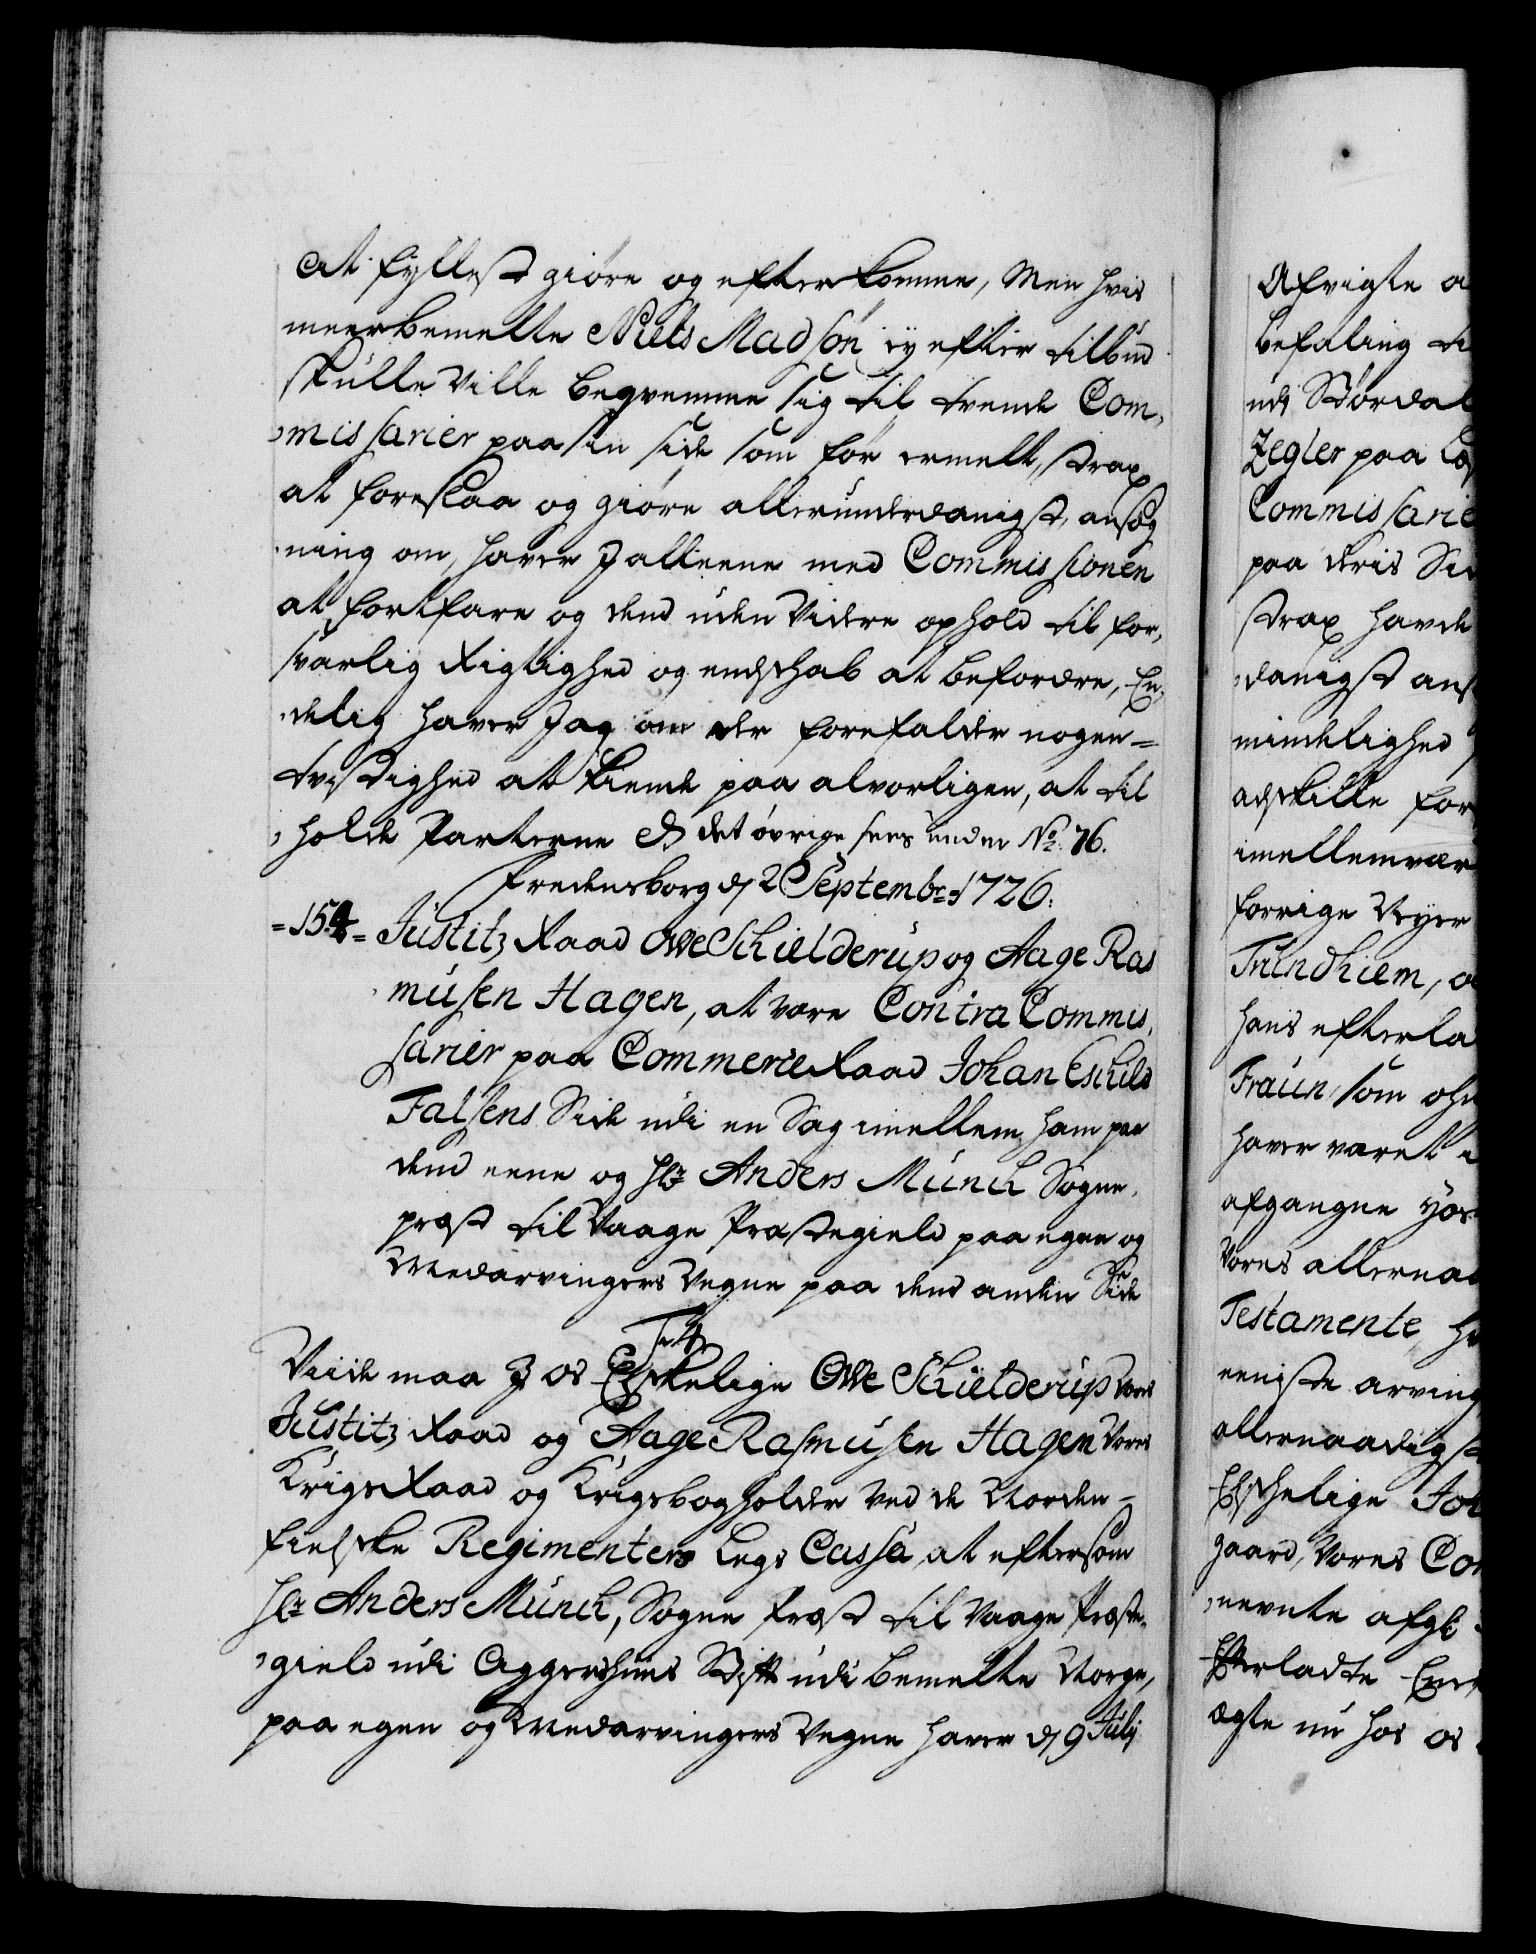 at fyllestgiøre og efterkomme, Men hvis
meerbemelte Niels Madsøn ey efter tilbud
skulle Ville beqvemme sig til tvende Com,
,missarier paa sin side som før ermelt, strax
at foreslaa og giøre allerunderdanigst, ansøg
,ning om, haver I alleene med Commissionen
at fortfare og dend uden Videre ophold til for,
svarlig Rigtighed og endskab at befordre, En,
,delig haver Jag om der forefalder nogen =
tvistighed at kiende paa alvorligen, at til
,holde Parterne &c det øvrige sees under No. 76.
Fredensborg d 2 Septembr 1726.
=154= Justitz Raad Owe Schielderup og Aage Ras
musen Hagen, at være Contra Commis,
sarier paa Commerce Raad Johan Eschild
Falsens Side udi en Sag imellem ham paa
dend eene og Hr Anders Munch Sogne,
præst til Vaage Præstegield paa egne og
Medarvingers Vegne paa dend anden Side
F 4
Viide maa I os Elskelige Owe Schielderup Vores
Justitz Raad og Aage Rasmusen Hagen Vores
Krigs Raad og Krigsbogholder Ved de Norden =
fielske Regimenters Legs Cassa, at eftersom
Hr Anders Munch, Sogne Præst til Vaage Præste,
,gield udi Aggershuus Stift udi bemelte Norge,
paa egen og Medarvingers Vegne haver d 9 Julj
Afvigte a
befaling ti
udi Størdal
Zegler paa
Commissarie
paa deris Si
strax havde
,danigst ans
mindelighed
adskille for
imellemvær
forrige Weyer
Trundhiem, o
hans efterla
Fraun, som
haver været
afgangne
Vores allernaa
Testamente
eeniste arving
allernaadigst
Elskelige Joh
gaard, Vores Co
,nevnte afg
Efterladte En
ægte nu hos os